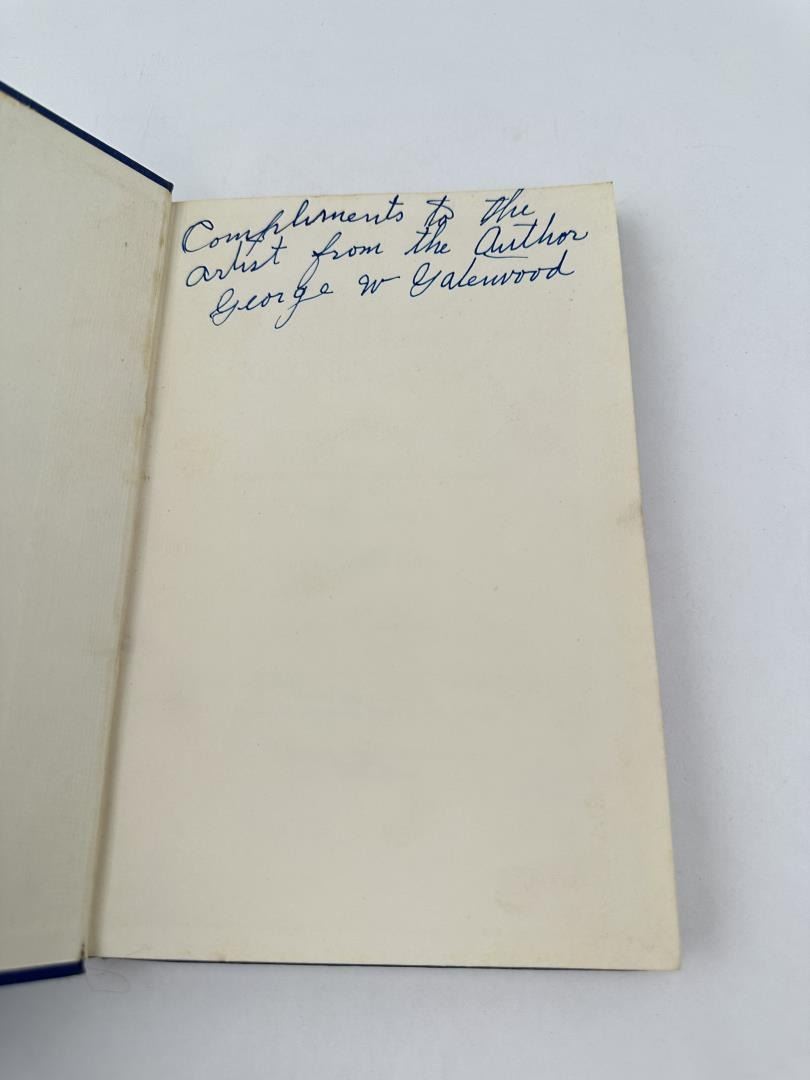 Compliments to the
artist from the Author
George W Galenwood